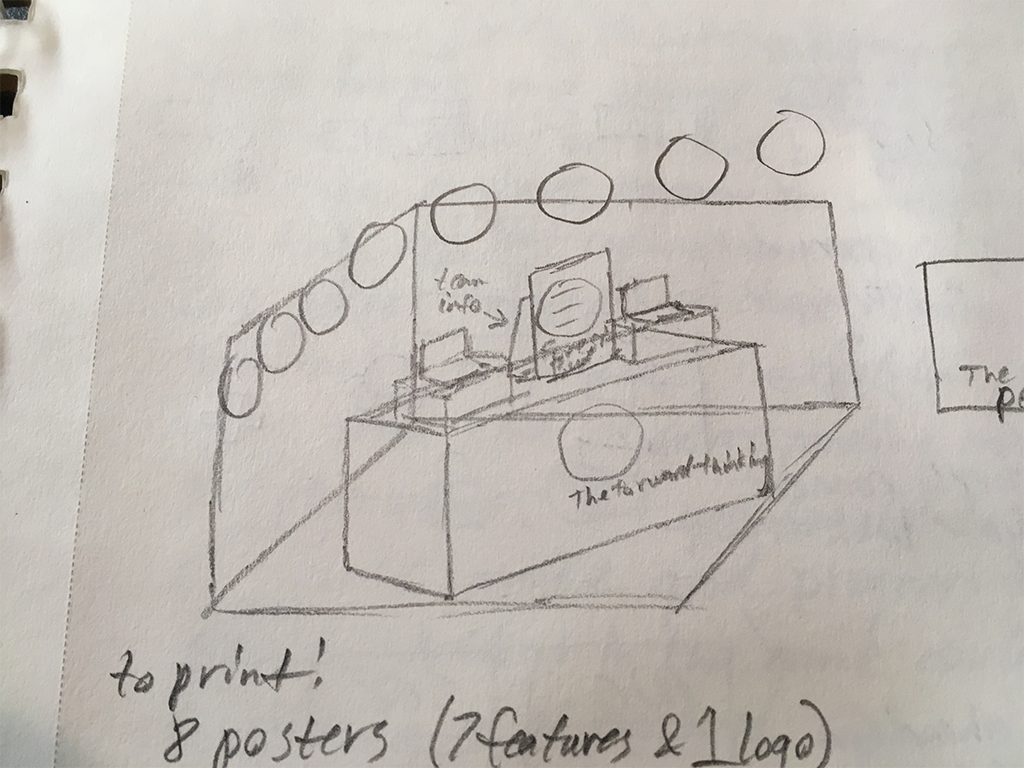 team
info
The forward-thinking
The
to print!
8 posters (7 features & 1 logo)